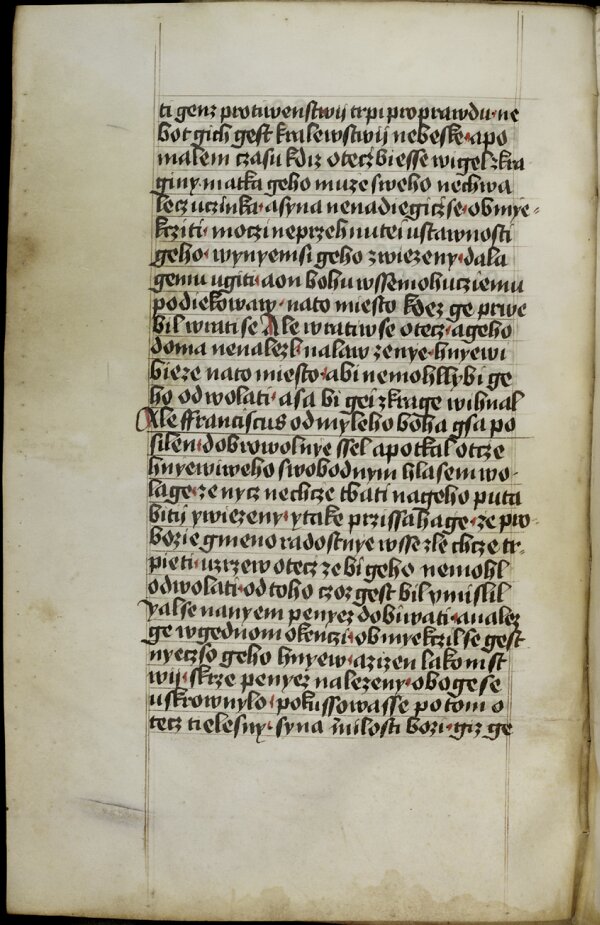 ti genz protiwenstwij trpi pro prawdu· ne
bot gich gest kralewstwij nebeske· a po
malem czasu kdiz otecz biesse wigel z kra
giny· matka geho muze sweho nechwa
lecz uczinka· a syna nenadiegicz se· obmye-
kcziti· moczi neprzehnutei ustawnosti
geho· wynyemsi geho z wiezeny· dala
gemu ugiti· a on bohu wssemohucziemu
podiekowaw· na to miesto kdez ge prwe
bil wrati se Ale wratiw se otecz· a geho
doma nenalezl· nalaw zenye· hnyewi
bieze na to miesto· abi nemohllybi ge
ho odwolati· asa bi gei z krage wihnal
Ale ffranciscus od myleho boha gsa po
silen· dobrowolnye ssel a potkal otcze
hnyewiweho swobodnym hlasem wo-
lage· ze nycz nechcze tbati na geho puta
bitij y wiezeny· y take przissahage· ze pro
bozie gmeno radostnye wsse zle chcze tr-
pieti· uzrzew otecz ze bi geho nemohl
odwolati· od toho czoz gest bil ymislil
yal se na nyem penyez dobiwati· a nalez
ge w gednom okenczi· obmyekczil se gest
nyeczso geho hnyew· a zizen lakomst
wij· skrze penyez nalezeny· oboge se
uskrownylo· pokussowasse potom o
tecz tielesny· syna milosti bozi· giz ge